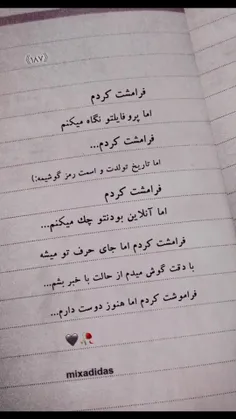 (۱۸۷)
فرامشت کردم
اما پروفایلتو نگاه میکنم
فرامشت کردم...
اما تاریخ تولدت و اسمت رمز گوشیمه:)
فرامشت کردم
اما آنلاین بودنتو چك میکنم...
فرامشت کردم اما جای حرف تو میشه
با دقت گوش میدم از حالت با خبر بشم...
فراموشت کردم اما هنوز دوست دارم...
🖤🥀
mixadidas